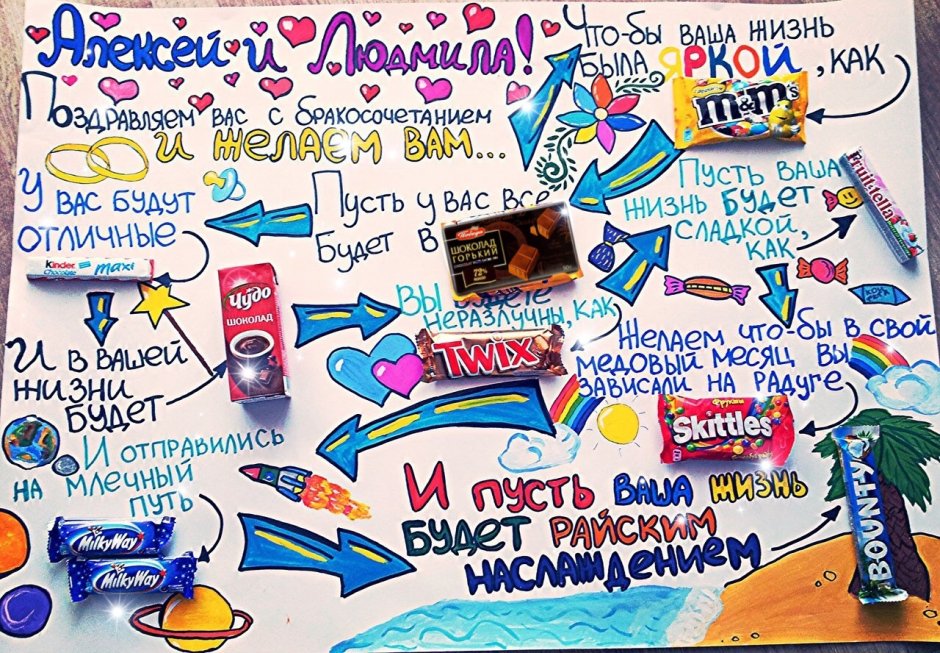 Алексей и Людмила!
Поздравляем вас с бракосочетанием
и желаем вам...
Что-бы ваша жизнь
была яркой, как
m&m's
Пусть ваша
жизнь будет
сладкой,
как
Fruittella
Пусть у вас все
будет в
Победа
ШОКОЛАД
ГОРЬКИЙ
72%
У вас будут
отличные
Kinder
Chocolate
maxi
И в вашей
жизни
будет
Чудо
ШОКОЛАД
Вы будете
неразлучны, как
TWIX
Желаем что-бы в свой
медовый месяц вы
зависали на радуге
Фрукты
Skittles
И отправились
на млечный
путь
MilkyWay
MilkyWay
И пусть ваша жизнь
будет райским
наслаждением
BOUNTY